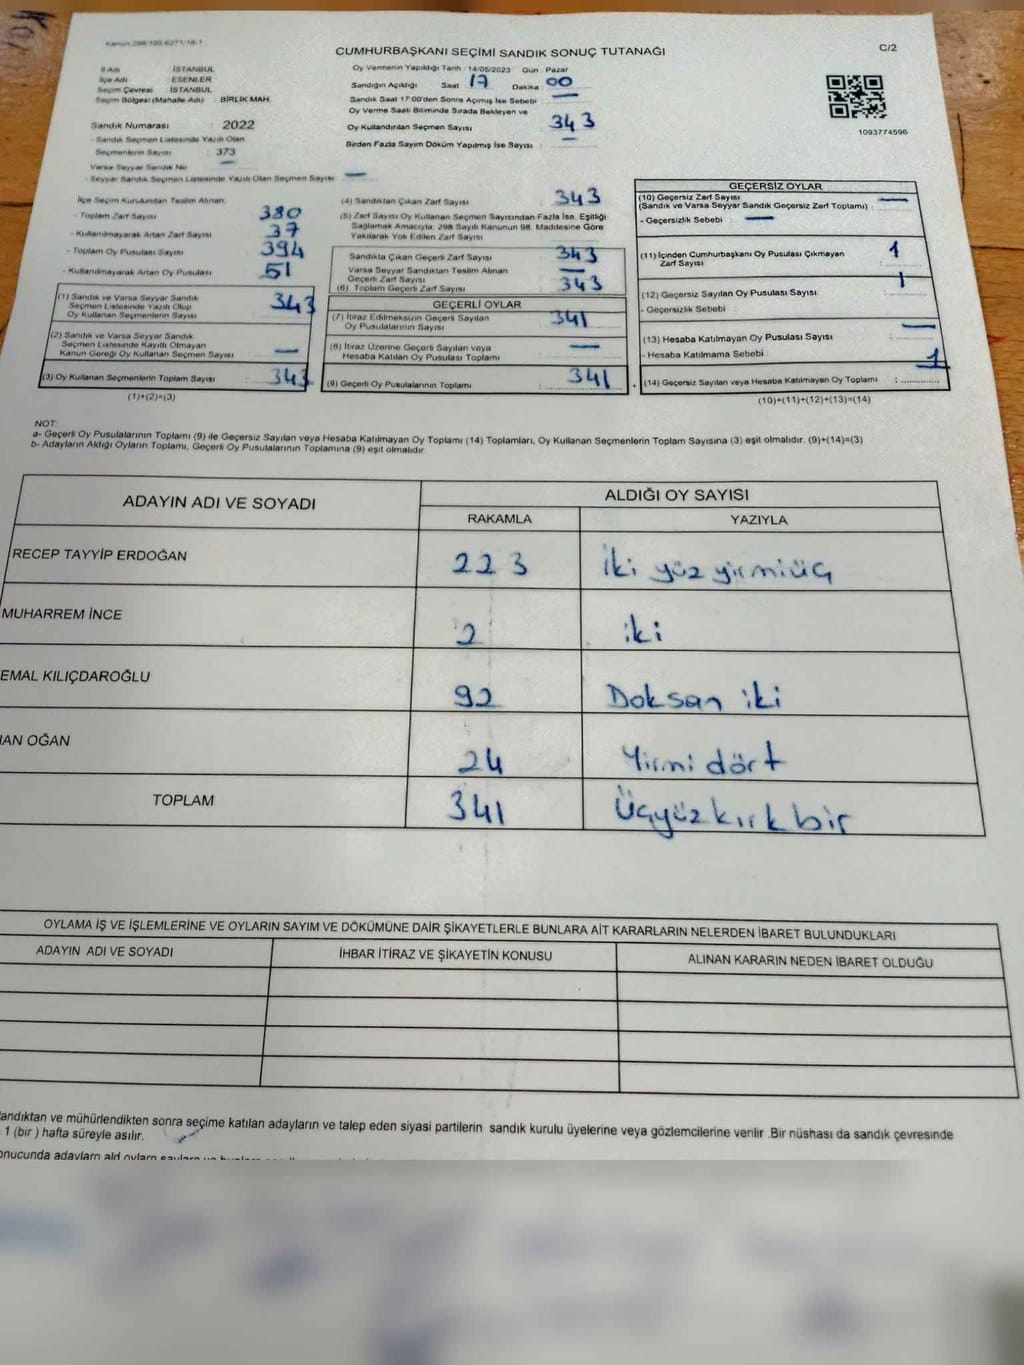 Kanun:298/105-6271/18-1
CUMHURBAŞKANI SEÇİMİ SANDIK SONUÇ TUTANAĞI
C/2
İl Adı : İSTANBUL
İlçe Adı : ESENLER
Seçim Çevresi : İSTANBUL
Seçim Bölgesi (Mahalle Adı) : BİRLİK MAH.
Sandık Numarası : 2022
- Sandık Seçmen Listesinde Yazılı Olan
Seçmenlerin Sayısı : 373
Varsa Seyyar Sandık No —
- Seyyar Sandık Seçmen Listesinde Yazılı Olan Seçmen Sayısı —
Oy Vermenin Yapıldığı Tarih : 14/05/2023 Gün : Pazar
Sandığın Açıldığı Saat 17 Dakika 00
Sandık Saat 17:00'den Sonra Açımış İse Sebebi —
Oy Verme Saati Bitiminde Sırada Bekleyen ve
Oy Kullandırılan Seçmen Sayısı : 343
Birden Fazla Sayım Döküm Yapılmış İse Sayısı :
1093774596
İlçe Seçim Kurulundan Teslim Alınan:
- Toplam Zarf Sayısı 380
- Kullanılmayarak Artan Zarf Sayısı 37
- Toplam Oy Pusulası Sayısı 394
- Kullanılmayarak Artan Oy Pusulası 51
(1) Sandık ve Varsa Seyyar Sandık
Seçmen Listesinde Yazılı Olup
Oy Kullanan Seçmenlerin Sayısı : 343
(2) Sandık ve Varsa Seyyar Sandık
Seçmen Listesinde Kayıtlı Olmayan
Kanun Gereği Oy Kullanan Seçmen Sayısı —
(3) Oy Kullanan Seçmenlerin Toplam Sayısı : 343
(1)+(2)=(3)
(4) Sandıktan Çıkan Zarf Sayısı : 343
(5) Zarf Sayısı Oy Kullanan Seçmen Sayısından Fazla İse, Eşitliği
Sağlamak Amacıyla, 298 Sayılı Kanunun 98. Maddesine Göre
Yakılarak Yok Edilen Zarf Sayısı :
Sandıkta Çıkan Geçerli Zarf Sayısı 343
Varsa Seyyar Sandıktan Teslim Alınan
Geçerli Zarf Sayısı —
(6) Toplam Geçerli Zarf Sayısı : 343
GEÇERLİ OYLAR
(7) İtiraz Edilmeksizin Geçerli Sayılan
Oy Pusulalarının Sayısı 341
(8) İtiraz Üzerine Geçerli Sayılan veya
Hesaba Katılan Oy Pusulası Toplamı —
(9) Geçerli Oy Pusulalarının Toplamı : 341
GEÇERSİZ OYLAR
(10) Geçersiz Zarf Sayısı
(Sandık ve Varsa Seyyar Sandık Geçersiz Zarf Toplamı) : —
- Geçersizlik Sebebi : —
(11) İçinden Cumhurbaşkanı Oy Pusulası Çıkmayan
Zarf Sayısı : 1
(12) Geçersiz Sayılan Oy Pusulası Sayısı : 1
- Geçersizlik Sebebi :
(13) Hesaba Katılmayan Oy Pusulası Sayısı —
- Hesaba Katılmama Sebebi :
(14) Geçersiz Sayılan veya Hesaba Katılmayan Oy Toplamı :
(10)+(11)+(12)+(13)=(14)
NOT:
a- Geçerli Oy Pusulalarının Toplamı (9) ile Geçersiz Sayılan veya Hesaba Katılmayan Oy Toplamı (14) Toplamları, Oy Kullanan Seçmenlerin Toplam Sayısına (3) eşit olmalıdır. (9)+(14)=(3)
b- Adayların Aldığı Oyların Toplamı, Geçerli Oy Pusulalarının Toplamına (9) eşit olmalıdır
ADAYIN ADI VE SOYADI
ALDIĞI OY SAYISI
RAKAMLA YAZIYLA
RECEP TAYYİP ERDOĞAN 223 İki yüz yirmiüç
MUHARREM İNCE 2 iki
EMAL KILIÇDAROĞLU 92 Doksan iki
AN OĞAN 24 Yirmi dört
TOPLAM 341 Üçyüz kırk bir
OYLAMA İŞ VE İŞLEMLERİNE VE OYLARIN SAYIM VE DÖKÜMÜNE DAİR ŞİKAYETLERLE BUNLARA AİT KARARLARIN NELERDEN İBARET BULUNDUKLARI
ADAYIN ADI VE SOYADI İHBAR İTİRAZ VE ŞİKAYETİN KONUSU ALINAN KARARIN NEDEN İBARET OLDUĞU
andıktan ve mühürlendikten sonra seçime katılan adayların ve talep eden siyasi partilerin sandık kurulu üyelerine veya gözlemcilerine verilir .Bir nüshası da sandık çevresinde
1 (bir ) hafta süreyle asılır.